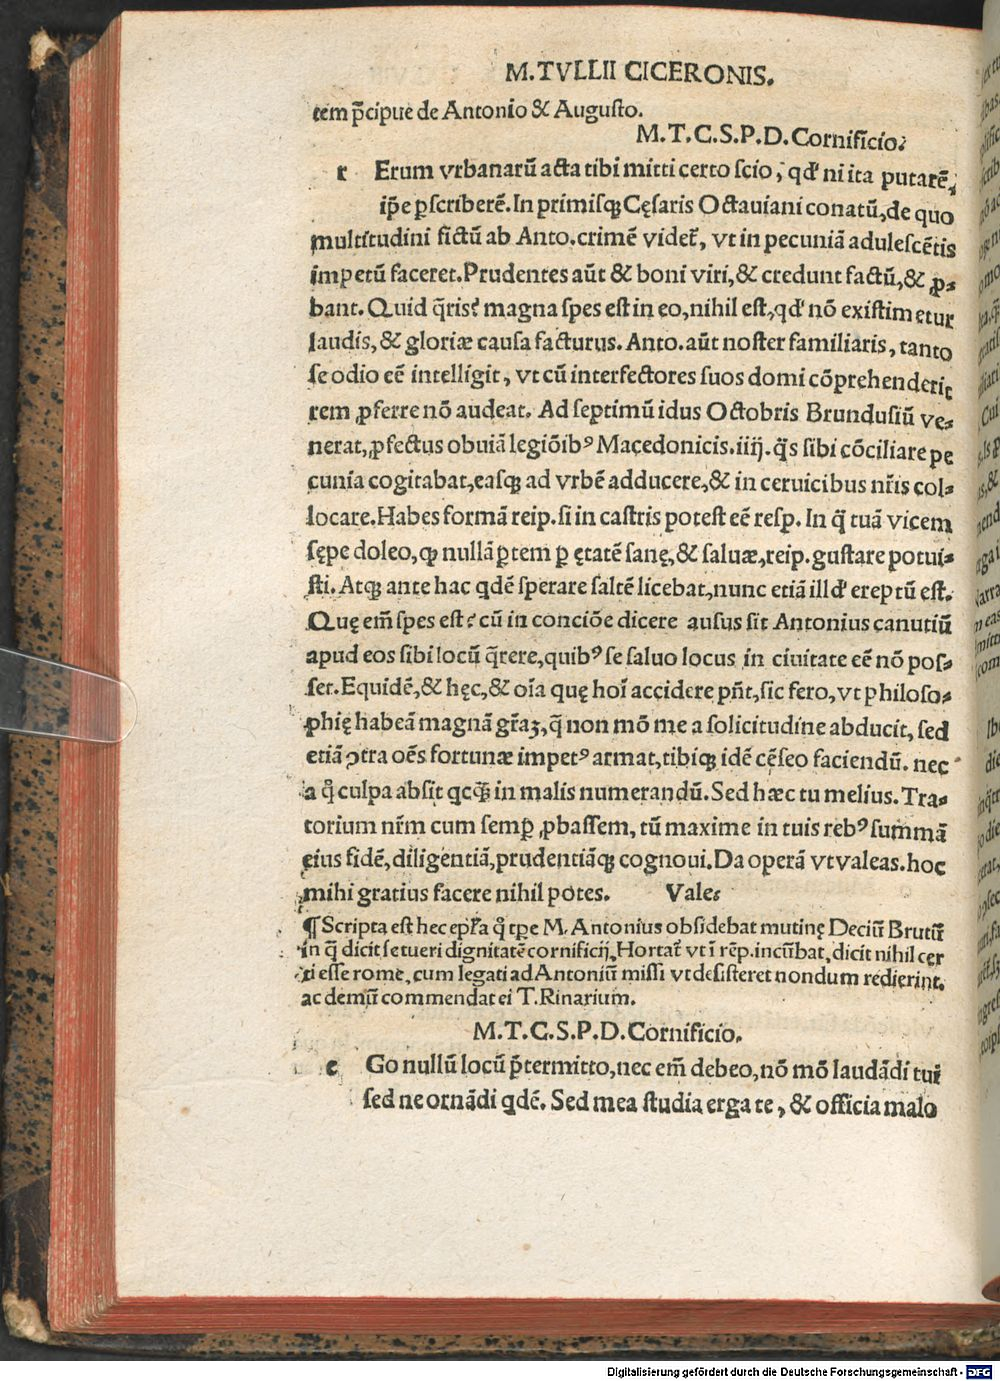 M.TVLLII CICERONIS.
tem p̄cipue de Antonio & Augusto.
M.T.C.S.P.D.Cornificio.
r Erum vrbanarū acta tibi mitti certo scio, qd' ni ita putarē,
ip̄e ꝑscriberē. In primisqꝫ Cęsaris Octauiani conatū, de quo
multitudini fictū ab Anto. crimē videt᷑, vt in pecuniā adulescētis
impetū faceret. Prudentes aūt & boni viri, & credunt factū, & ꝓ-
bant. Quid q̄ris? magna spes est in eo, nihil est, qd' nō existimetur
laudis, & gloriæ causa facturus. Anto. aūt noster familiaris, tanto
se odio eē intelligit, vt cū interfectores suos domi cōprehenderit
rem ꝓferre nō audeat. Ad septimū idus Octobris Brundusiū ve-
nerat, ꝓfectus obuiā legiōibꝰ Macedonicis.iiij. q̄s sibi cōciliare pe
cunia cogitabat, easqꝫ ad vrbē adducere, & in ceruicibus nr̄is col-
locare. Habes formā reip. si in castris potest eē resp. In q̄ tuā vicem
sępe doleo, ꝙ nullā ꝑtem ꝑ ętatē sanę, & saluæ, reip. gustare potui-
sti. Atqꝫ ante hac qdē sperare saltē licebat, nunc etiā illd' ereptū est.
Quę em̄ spes est? cū in conciōe dicere ausus sit Antonius canutiū
apud eos sibi locū q̄rere, quibꝰ se saluo locus in ciuitate eē nō pos-
set. Equidē, & hęc, & oīa quę hoī accidere pn̄t, sic fero, vt philoso-
phię habeā magnā gr̄aꝫ, q̄ non mō me a solicitudine abducit, sed
etiā ꝯtra oēs fortunæ impetꝰ armat, tibiqꝫ idē cēseo faciendū. nec
a q̊ culpa absit qcq̄ in malis numerandū. Sed hæc tu melius. Tra-
torium nr̄m cum semp̄ ꝓbassem, tū maxime in tuis rebꝰ summā
eius fidē, diligentiā, prudentiāqꝫ cognoui. Da operā vt valeas. hoc
mihi gratius facere nihil potes. Vale.
¶ Scripta est hec epr̄a q̊ tꝑe M. Antonius obsidebat mutinę Deciū Brutū
in q̄ dicit se tueri dignitatē cornificij. Hortat᷑ vt ī rēp. incūbat, dicit nihil cer
ti esse rome, cum legati ad Antoniū missi vt desisteret nondum redierint.
ac demū commendat ei T. Rinarium.
M.T.C.S.P.D.Cornificio.
e Go nullū locū p̄termitto, nec em̄ debeo, nō mō laudādi tui
sed ne ornādi qdē. Sed mea studia erga te, & officia malo
Digitalisierung gefördert durch die Deutsche Forschungsgemeinschaft - DFG